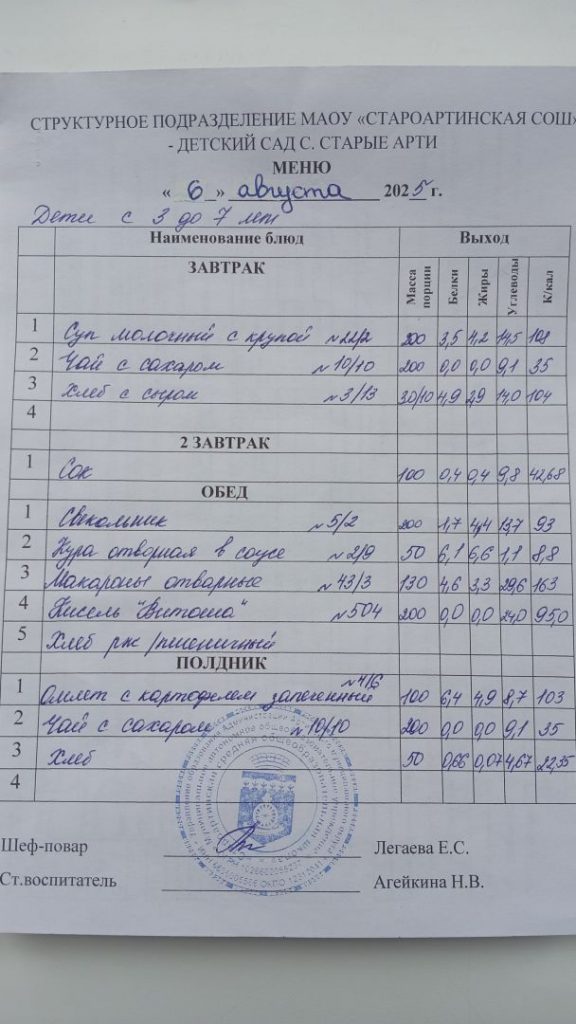 СТРУКТУРНОЕ ПОДРАЗДЕЛЕНИЕ МАОУ «СТАРОАРТИНСКАЯ СОШ»
- ДЕТСКИЙ САД С. СТАРЫЕ АРТИ
МЕНЮ
« 6 » августа 2025 г.
Дети с 3 до 7 лет
Наименование блюд Выход
ЗАВТРАК Масса порции Белки Жиры Углеводы К/кал
1 Суп молочный с крупой №22/2 200 3,5 4,2 14,5 108
2 Чай с сахаром №10/10 200 0,0 0,0 9,1 35
3 Хлеб с сыром №3/13 30/10 4,9 2,9 14,0 104
4
2 ЗАВТРАК
1 Сок 100 0,4 0,4 9,8 42,68
ОБЕД
1 Свекольник №5/2 200 1,7 4,4 13,7 93
2 Кура отворная в соусе №2/9 50 6,1 6,6 1,1 8,8
3 Макароны отварные №43/3 130 4,6 3,3 29,6 163
4 Кисель "Витоша" №504 200 0,0 0,0 24,0 95,0
5 Хлеб рж/пшеничный
ПОЛДНИК
1 Омлет с картофелем запеченный №4/6 100 6,4 4,9 8,7 103
2 Чай с сахаром №10/10 200 0,0 0,0 9,1 35
3 Хлеб 50 0,66 0,07 4,67 22,35
4
Шеф-повар Легаева Е.С.
Ст.воспитатель Агейкина Н.В.